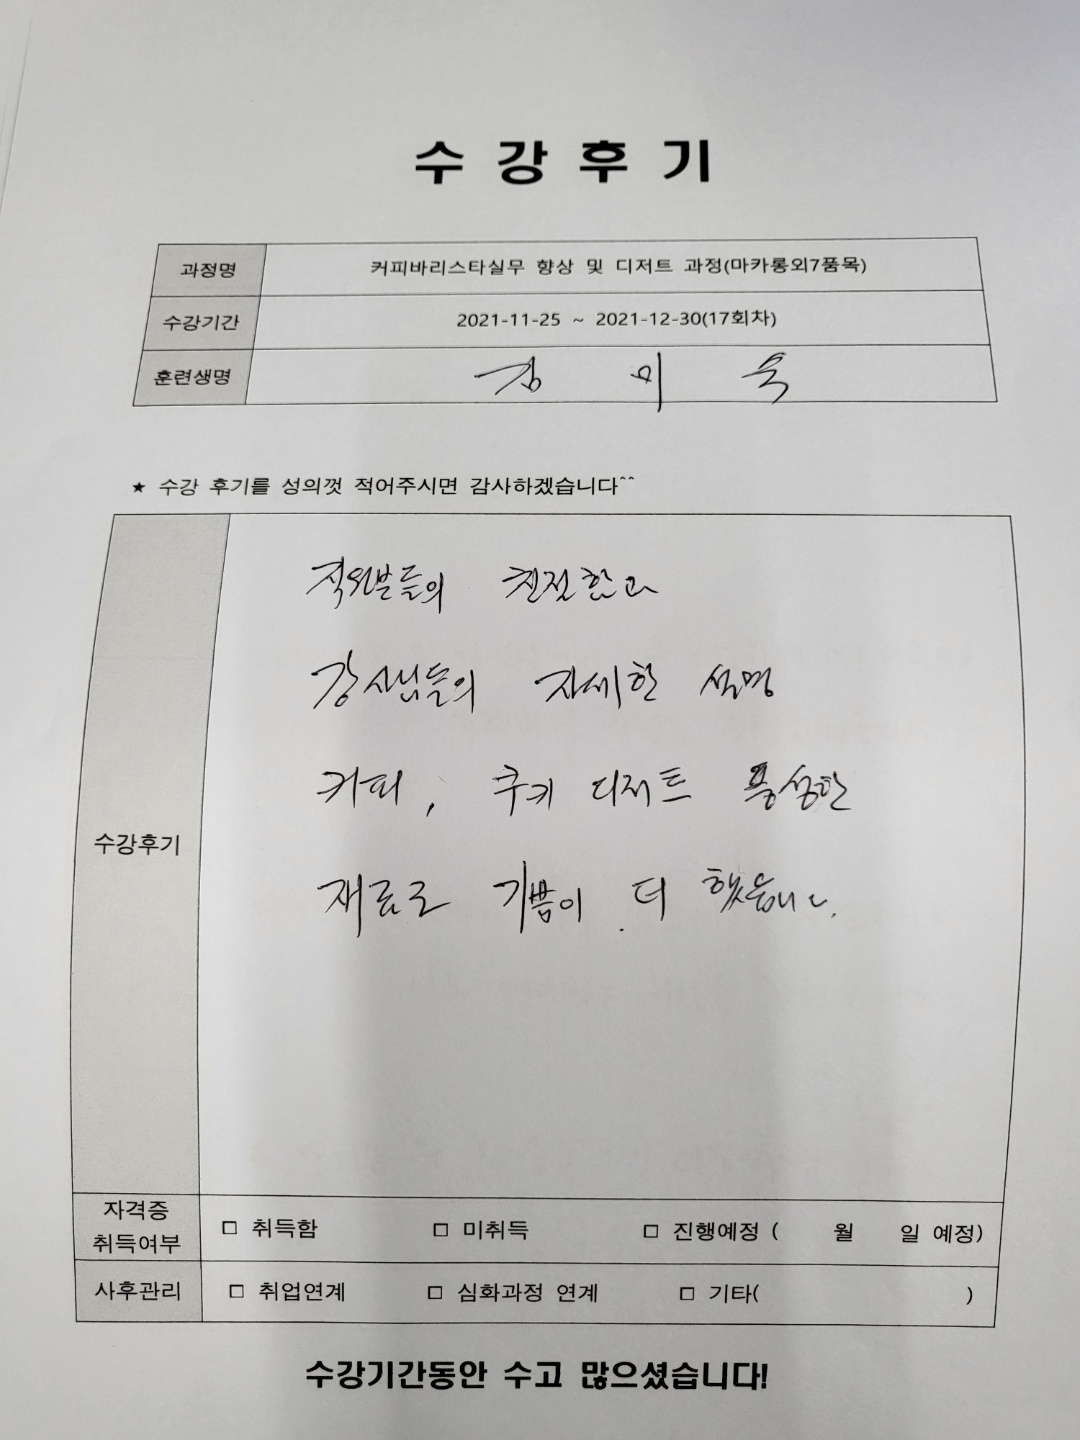 수 강 후 기
과정명 커피바리스타실무 향상 및 디저트 과정(마카롱외7품목)
수강기간 2021-11-25 ~ 2021-12-30(17회차)
훈련생명 김 미 숙
★ 수강 후기를 성의껏 적어주시면 감사하겠습니다^^
수강후기
직원분들의 친절함과
강사님들의 자세한 설명
커피, 쿠키 디저트 풍성한
재료로 기쁨이 더 했읍니다.
자격증 취득여부 □ 취득함 □ 미취득 □ 진행예정 ( 월 일 예정)
사후관리 □ 취업연계 □ 심화과정 연계 □ 기타( )
수강기간동안 수고 많으셨습니다!